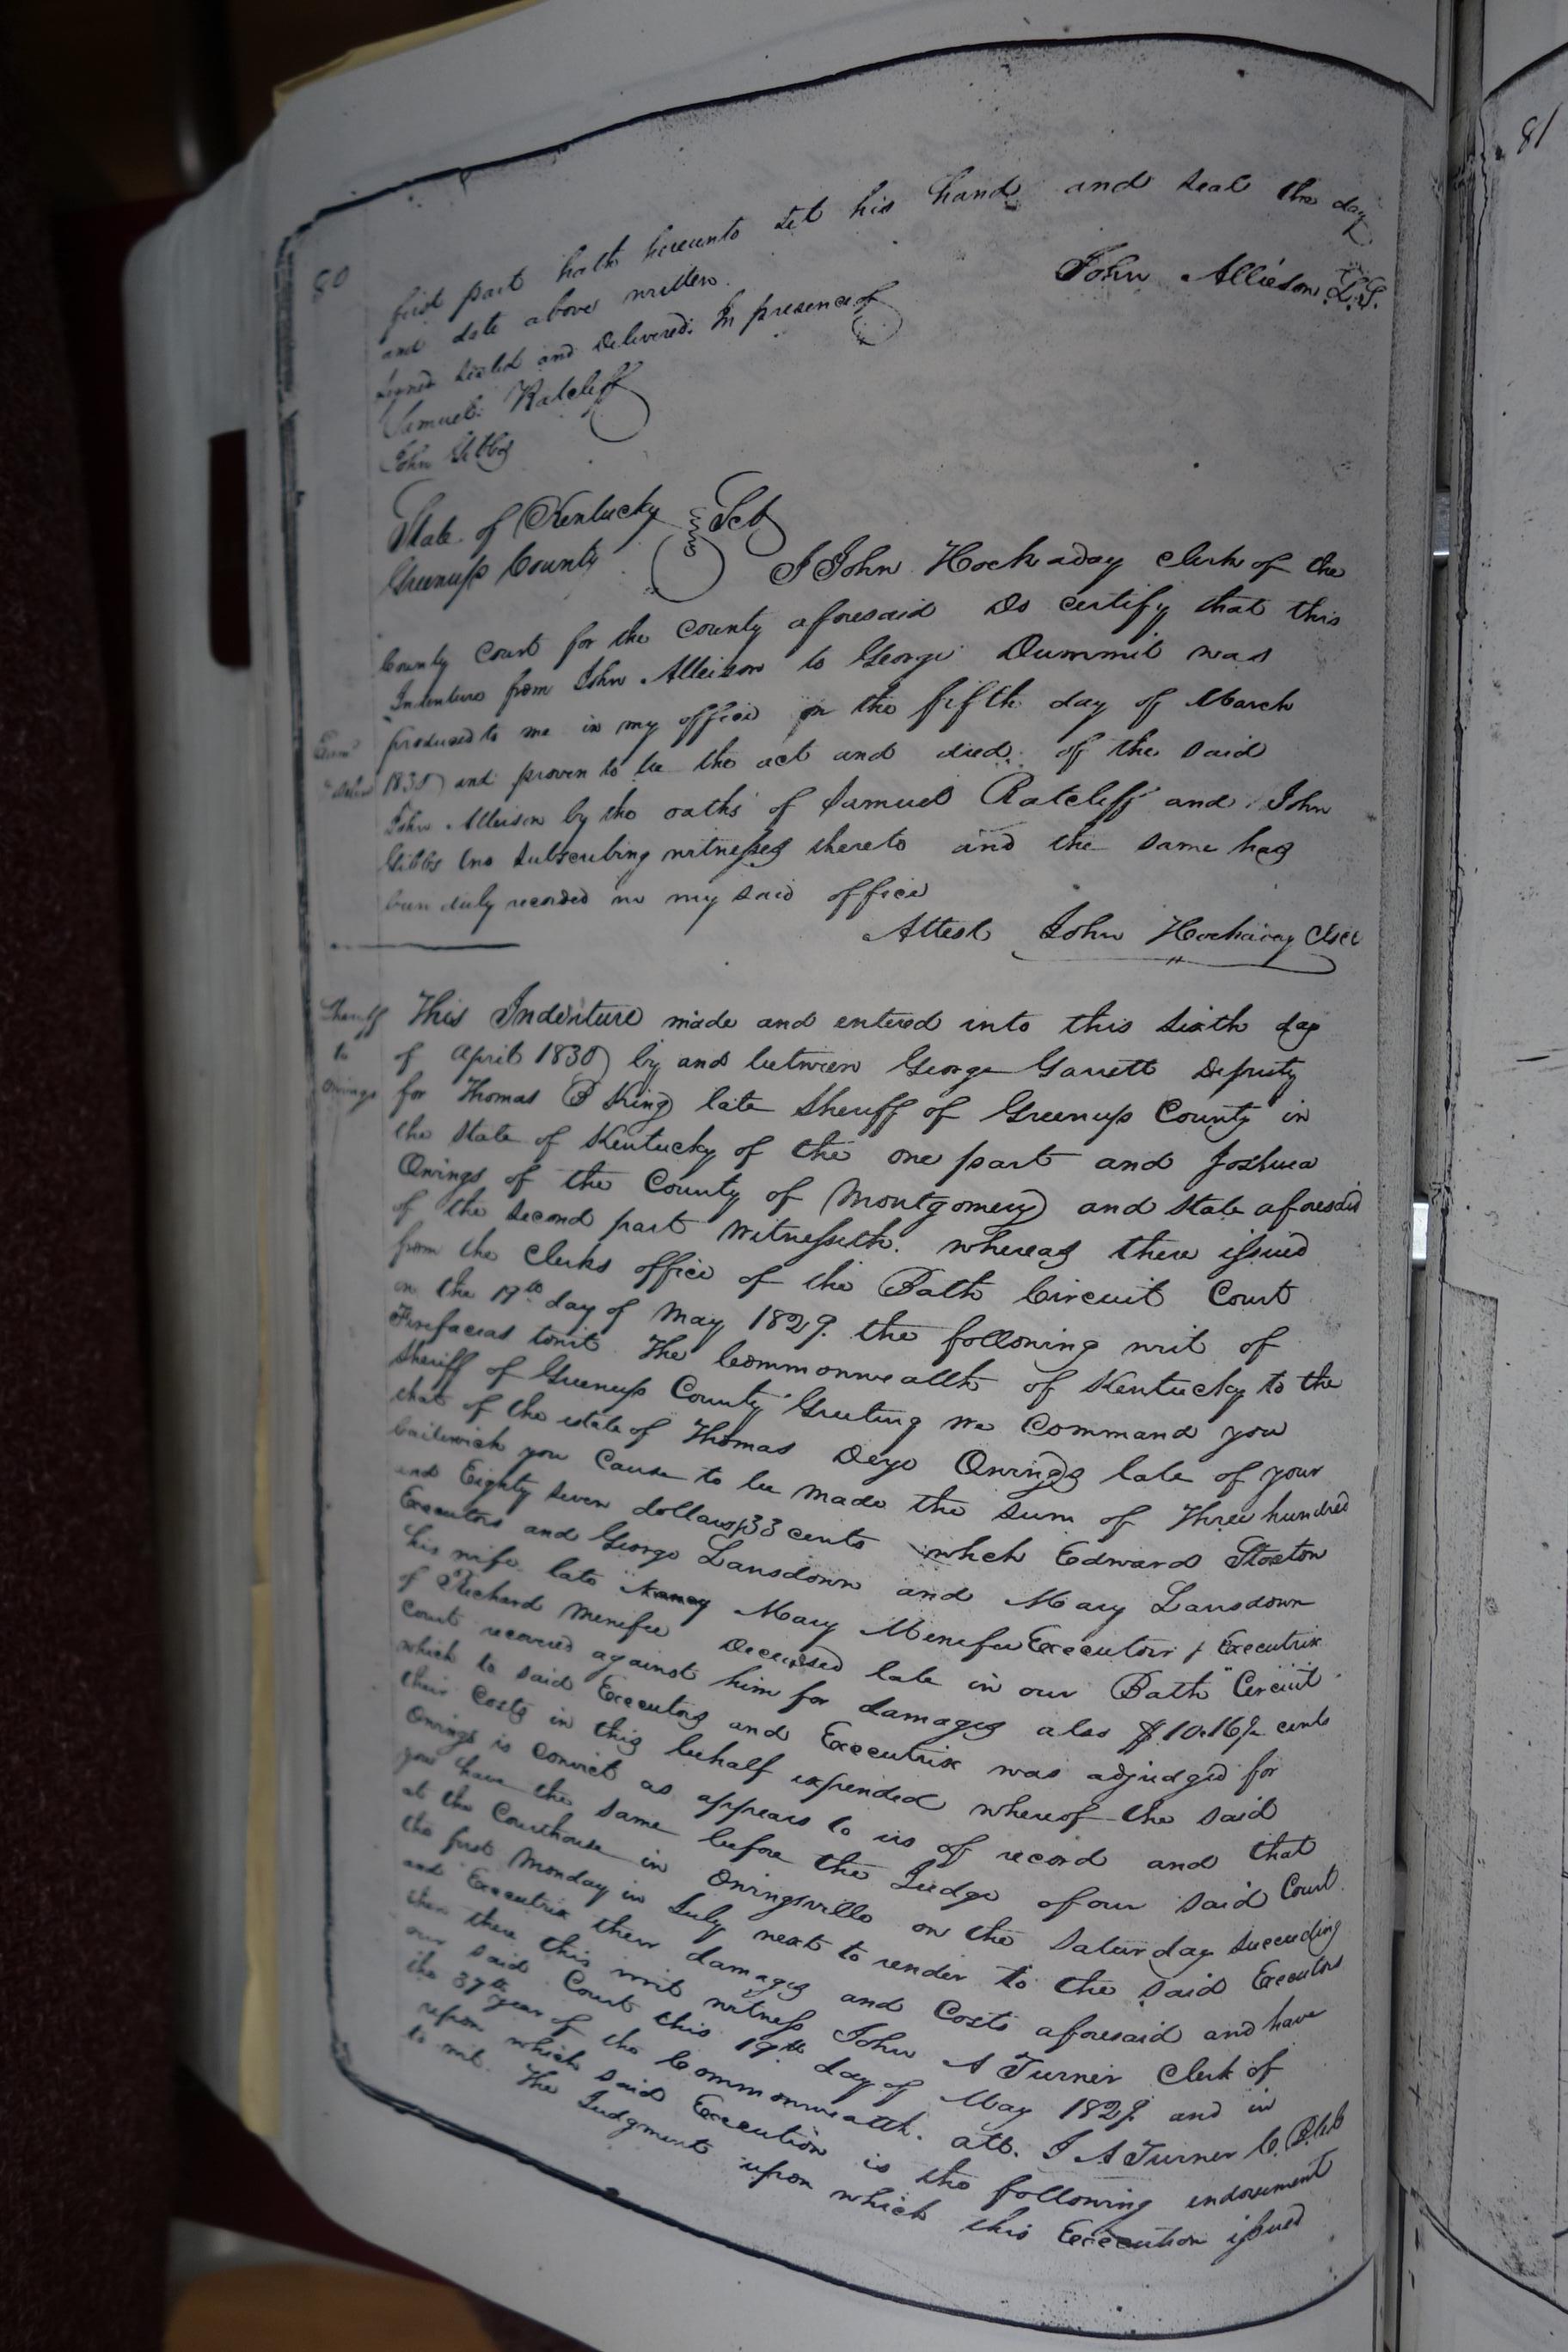 80
81
first part hath hereunto set his hand and seal the day
and date above written.
John Allison L.S.
signed sealed and Delivered. In presence of
Samuel. Ratcliff
John Gibbs
State of Kentucky
Greenup County Sct
I John Hockaday clerk of the
County Court for the county aforesaid do certify that this
Indenture from John Allison to George Dummit was
produced to me in my office on the fifth day of March
1830 and proven to be the act and deed. of the said
John Allison by the oaths of Samuel Ratcliff and John
Gibbs two subscribing witnesses thereto and the same has
been duly recorded in my said office
Attest John Hockaday
Sheriff
to
Owings
This Indenture made and entered into this sixth day
of April 1830 by and between George Garrett Deputy
for Thomas B King late Sheriff of Greenup County in
the State of Kentucky of the one part and Joshua
Owings of the County of Montgomery and State aforesaid
of the second part Witnesseth. whereas there issued
from the Clerks office of the Bath Circuit Court
on the 19th day of May 1829. the following writ of
Firefacias towit The Commonwealth of Kentucky to the
Sheriff of Greenup County Greeting we Command you
that of the estate of Thomas Deye Owings late of your
bailiwick you Cause to be made the sum of Three hundred
and Eighty seven dollars 33 cents which Edward Stockton
Executors and George Lansdown and Mary Lansdown
his wife late Nancy Mary Menefee Executor & Executrix
of Richard Menefee Deceased late in our Bath Circuit
Court recovered against him for damages also $10.16½ cents
which to said Executors and Executrix was adjudged for
their Costs in this behalf expended whereof the said
Owings is convict as appears to us of record and that
you have the same before the Judge of our said Court
at the Courthouse in Owingsville on the Saturday succeeding
the first Monday in July next to render to the said Executors
and Executrix their damages and Costs aforesaid and have
then there this writ witness John A Turner Clerk of
our said Court this 19th day of May 1829 and in
the 37th year of the Commonwealth. att. J A Turner
upon which said Execution is the following endorsement
to wit. The Judgment upon which this Execution issued